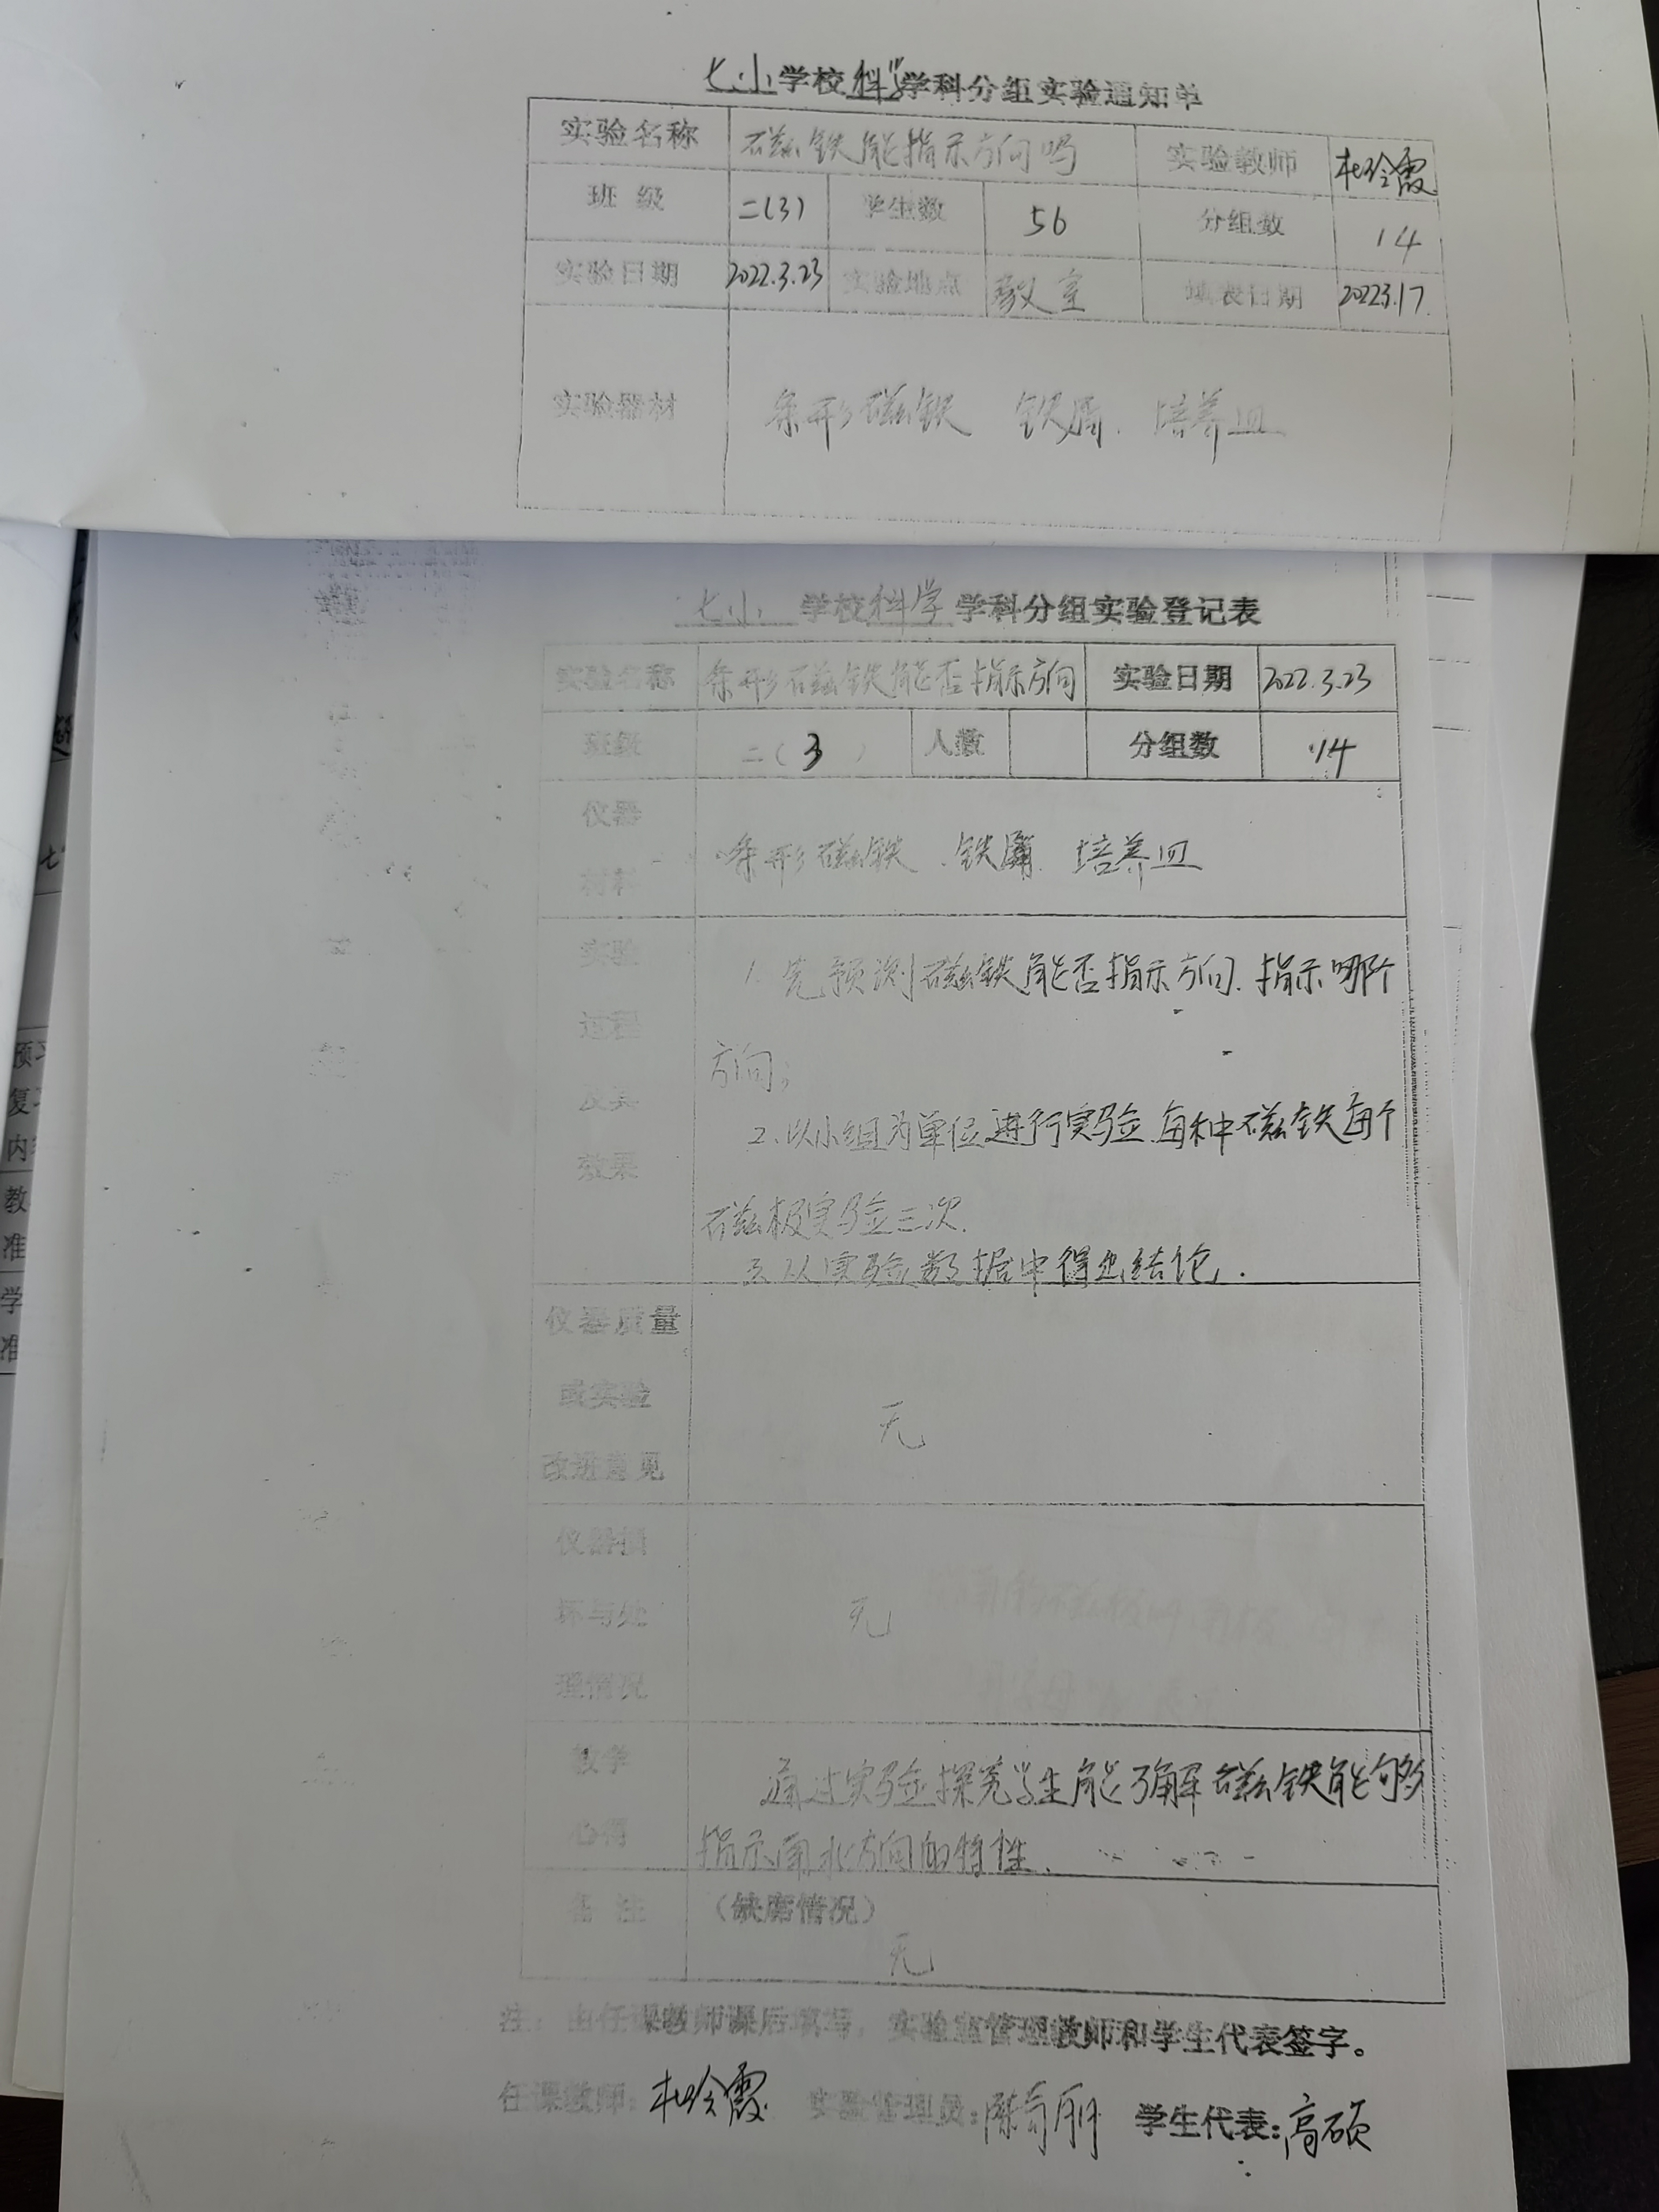 七小学校科学学科分组实验通知单
实验名称 磁铁能指示方向吗 实验教师
班级 二(3) 学生数 56 分组数 14
实验日期 2022.3.23 实验地点 教室 填表日期 2022.3.17.
实验器材 条形磁铁 铁屑. 培养皿
七小 学校科学 学科分组实验登记表
实验名称 条形磁铁能否指示方向 实验日期 2022.3.23
班级 二(3) 人数 分组数 14
仪器
材料
条形磁铁. 铁屑. 培养皿
实验
过程
及其
效果
1. 先预测磁铁能否指示方向. 指示哪个
方向;
2. 以小组为单位进行实验. 每种磁铁每个
磁极实验三次.
3. 从实验数据中得出结论.
仪器质量
或实验
改进意见
无
仪器损
坏与处
理情况
无
教学
心得
通过实验探究学生能了解磁铁能够
指示南北方向的特性.
备注 (缺席情况)
无
注:由任课教师课后填写,实验室管理教师和学生代表签字。
任课教师: 实验管理员: 学生代表:高硕